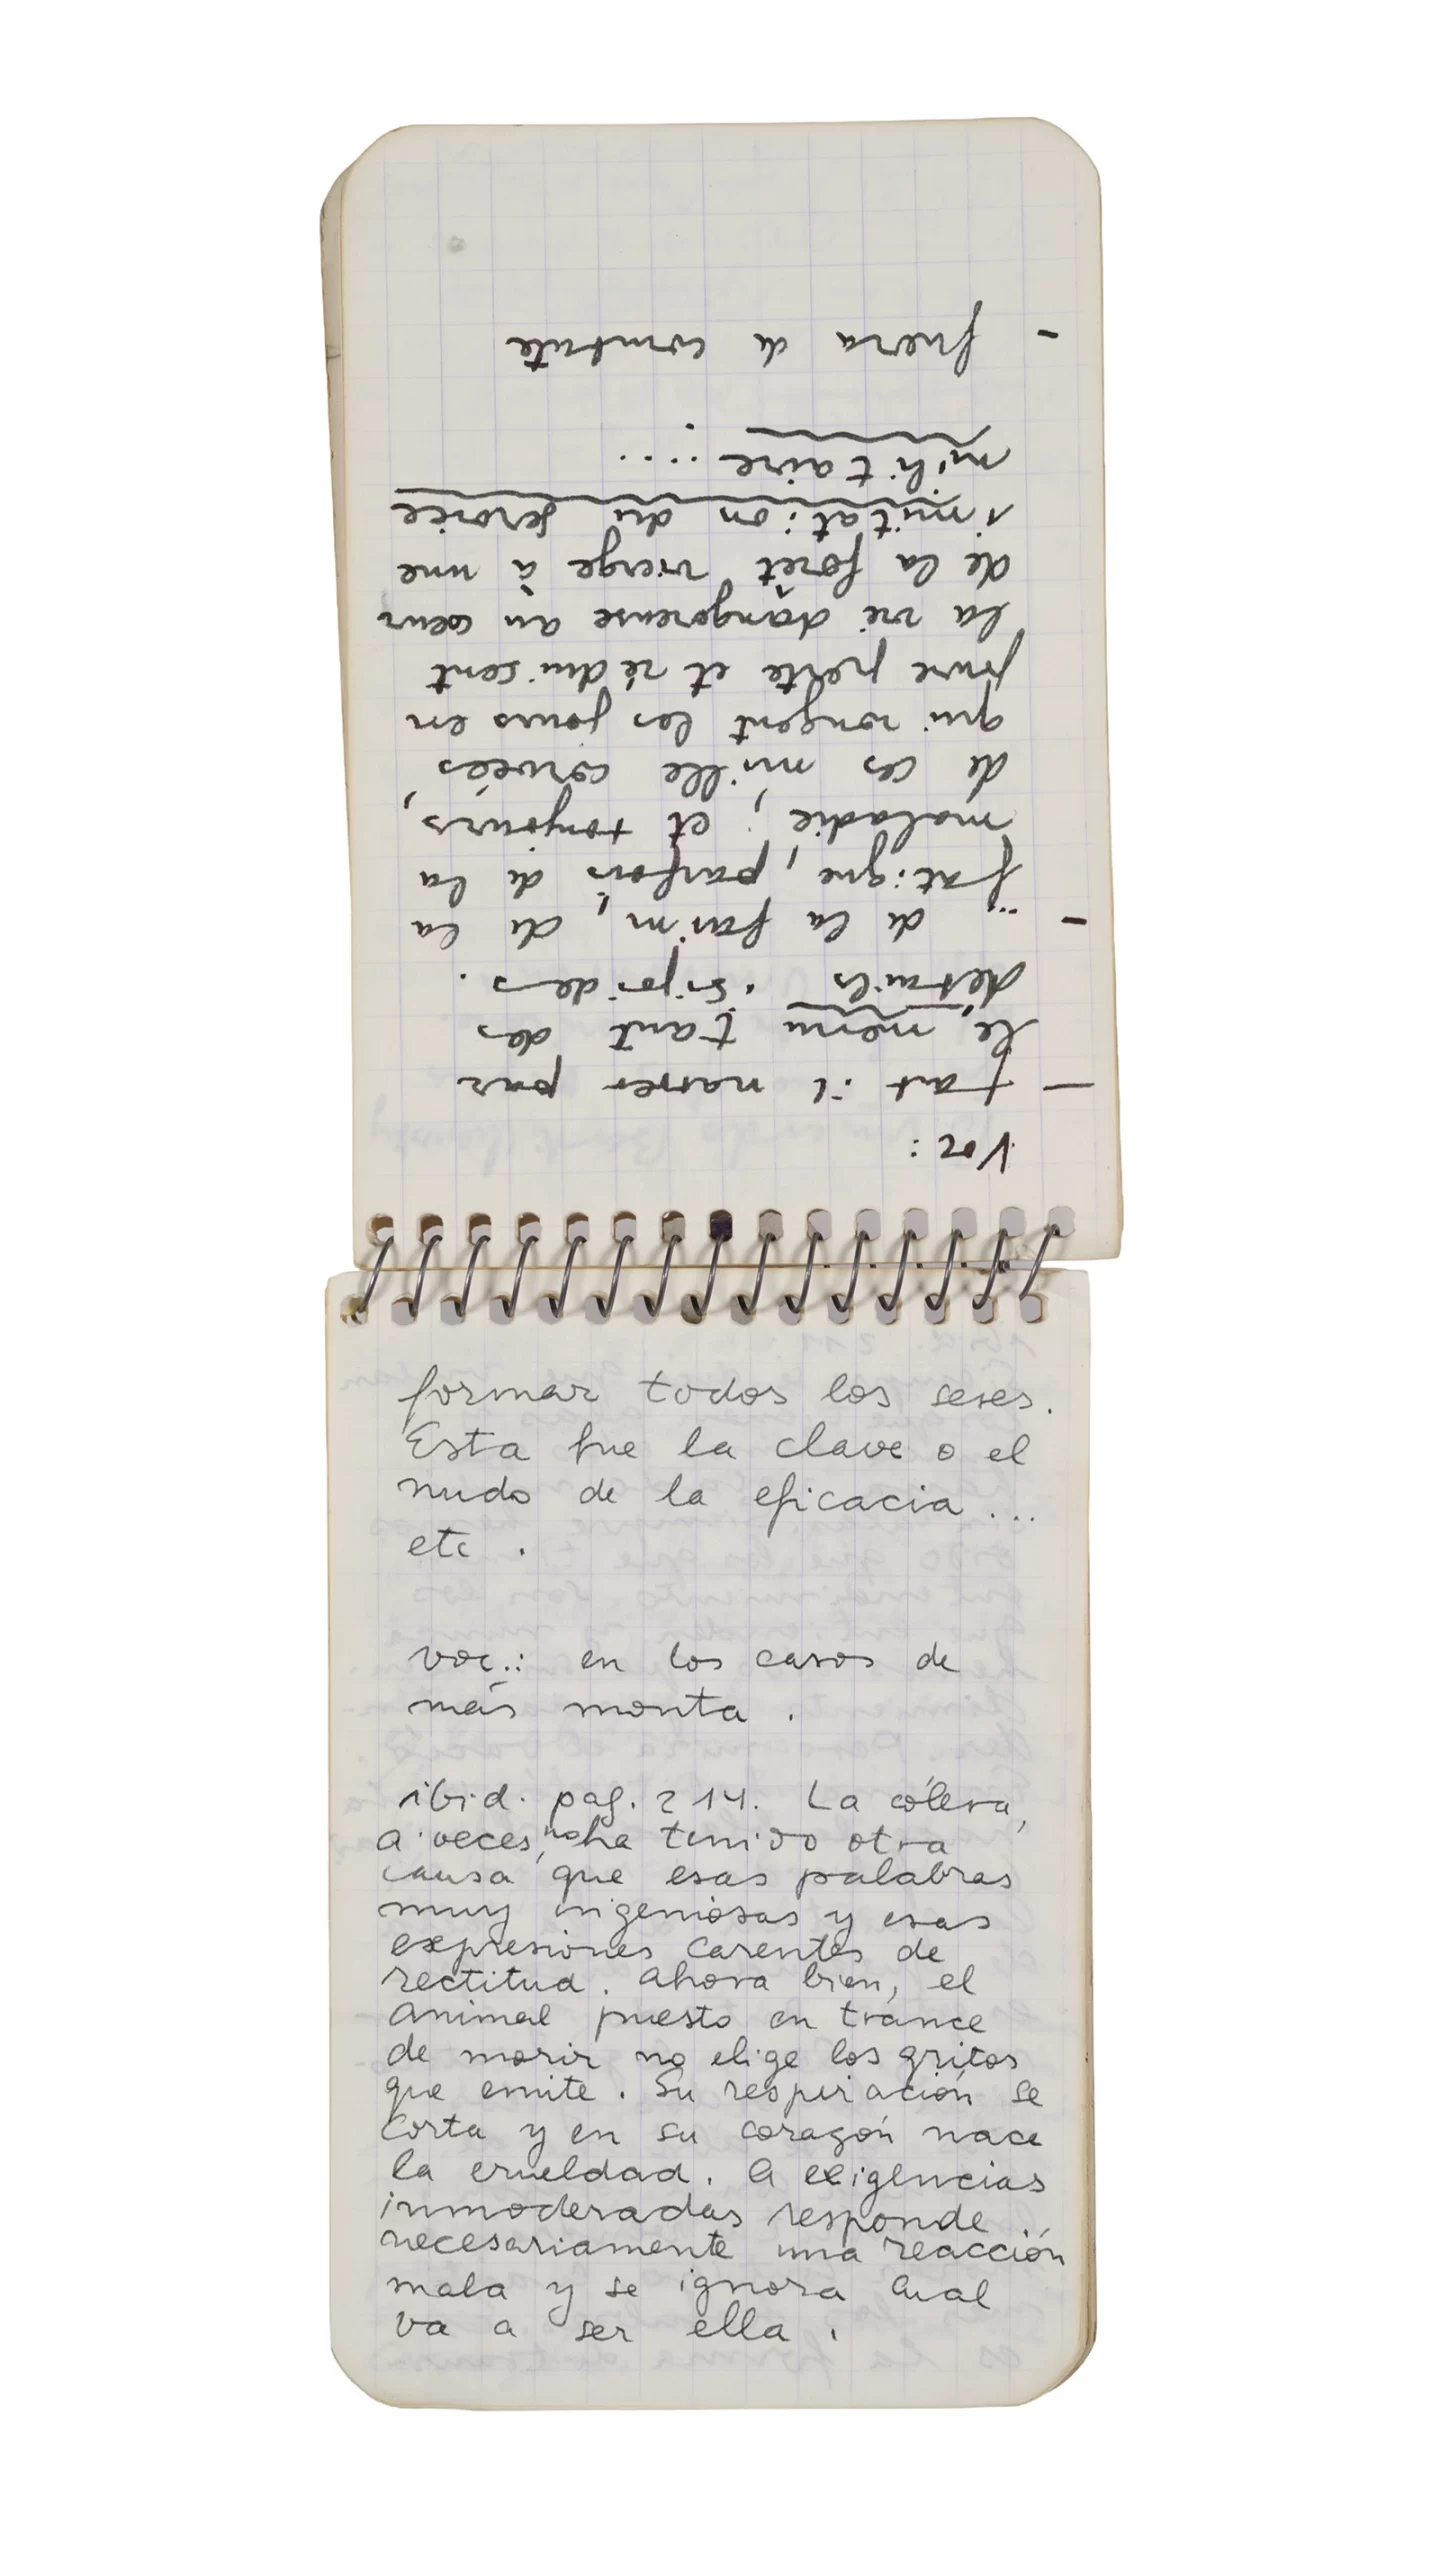 Voc :
— faut il narrer par
le menu tant des
détails insipides.
- ... de la faim, de la
fatigue, parfois de la
maladie ; et toujours,
de ces mille corvées,
qui rongent les jours en
pure perte et réduisent
la vie dangereuse au cœur
de la forêt vierge à une
imitation du service
militaire ....
- fuera de combate
formar todos los seres.
Esta fue la clave o el
nudo de la eficacia ...
etc .
voc.: en los casos de
más monta .
ibid. pag. 214. La cólera,
a veces, no ha tenido otra
causa que esas palabras
muy ingeniosas y esas
expresiones carentes de
rectitud. Ahora bien, el
animal puesto en trance
de morir no elige los gritos
que emite. Su respiración se
corta y en su corazón nace
la crueldad. A exigencias
inmoderadas responde
necesariamente una reacción
mala y se ignora cual
va a ser ella .